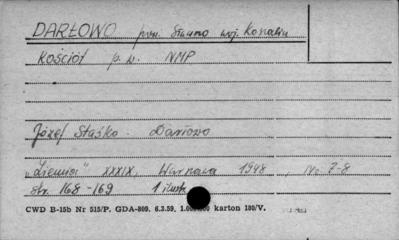 DARŁOWO pow. Sławno woj. Koszalin
Kościół p.w. NMP
Józef Staśko. Darłowo
„Ziemia" XXXIX, Warszawa 1948, Nr 7-8
str. 168-169 1 ilustr.
CWD B-15b Nr 515/P. GDA-809. 6.3.59. karton 180/V.